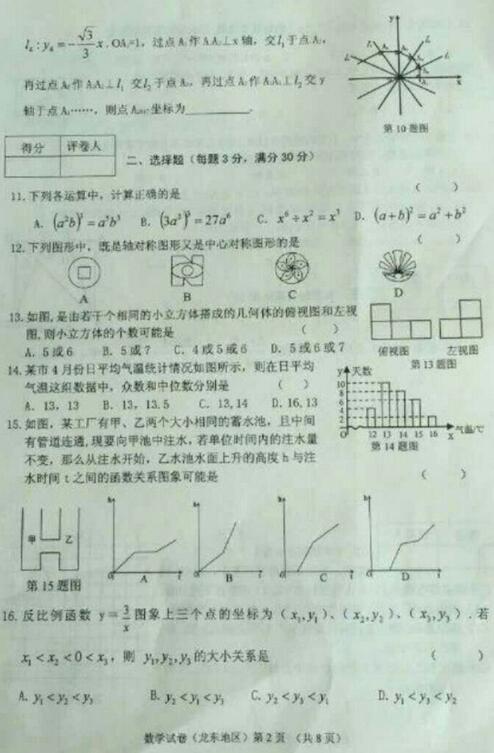 l₆:y₆=-√3/3 x.OA₁=1，过点A₁作A₁A₂⊥x轴，交l₁于点A₂，
再过点A₂作A₂A₃⊥l₁ 交l₂于点A₃，再过点A₃作A₃A₄⊥l₂交y
轴于点A₄……，则点 坐标为
y
x
第10题图
得分 评卷人
二、选择题（每题3分，满分30分）
11.下列各运算中，计算正确的是 （ ）
A. (a²b)³=a⁵b³ B. (3a²)³=27a⁶ C. x⁶÷x²=x³ D. (a+b)²=a²+b²
12.下列图形中，既是轴对称图形又是中心对称图形的是 （ ）
A B C D
13.如图，是由若干个相同的小立方体搭成的几何体的俯视图和左视
图，则小立方体的个数可能是 （ ）
A. 5或6 B. 5或7 C. 4或5或6 D. 5或6或7
俯视图 左视图
第13题图
14.某市4月份日平均气温统计情况如图所示，则在日平均
气温这组数据中，众数和中位数分别是 （ ）
A. 13，13 B. 13，13.5 C. 13,14 D.16,13
y 天数
10
8
6
4
2
0 12 13 14 15 16 x 气温/℃
第14题图
15.如图，某工厂有甲、乙两个大小相同的蓄水池，且中间
有管道连通，现要向甲池中注水，若单位时间内的注水量
不变，那么从注水开始，乙水池水面上升的高度h与注
水时间t之间的函数关系图象可能是 （ ）
甲 乙
第15题图
h h h h
0 A t 0 B t 0 C t 0 D t
16.反比例函数 y=3/x 图象上三个点的坐标为（x₁,y₁）、（x₂,y₂）、（x₃,y₃）.若
x₁<x₂<0<x₃，则 y₁,y₂,y₃的大小关系是 （ ）
A. y₁<y₂<y₃ B. y₂<y₁<y₃ C. y₂<y₃<y₁ D. y₁<y₃<y₂
数学试卷（龙东地区）第2页（共8页）